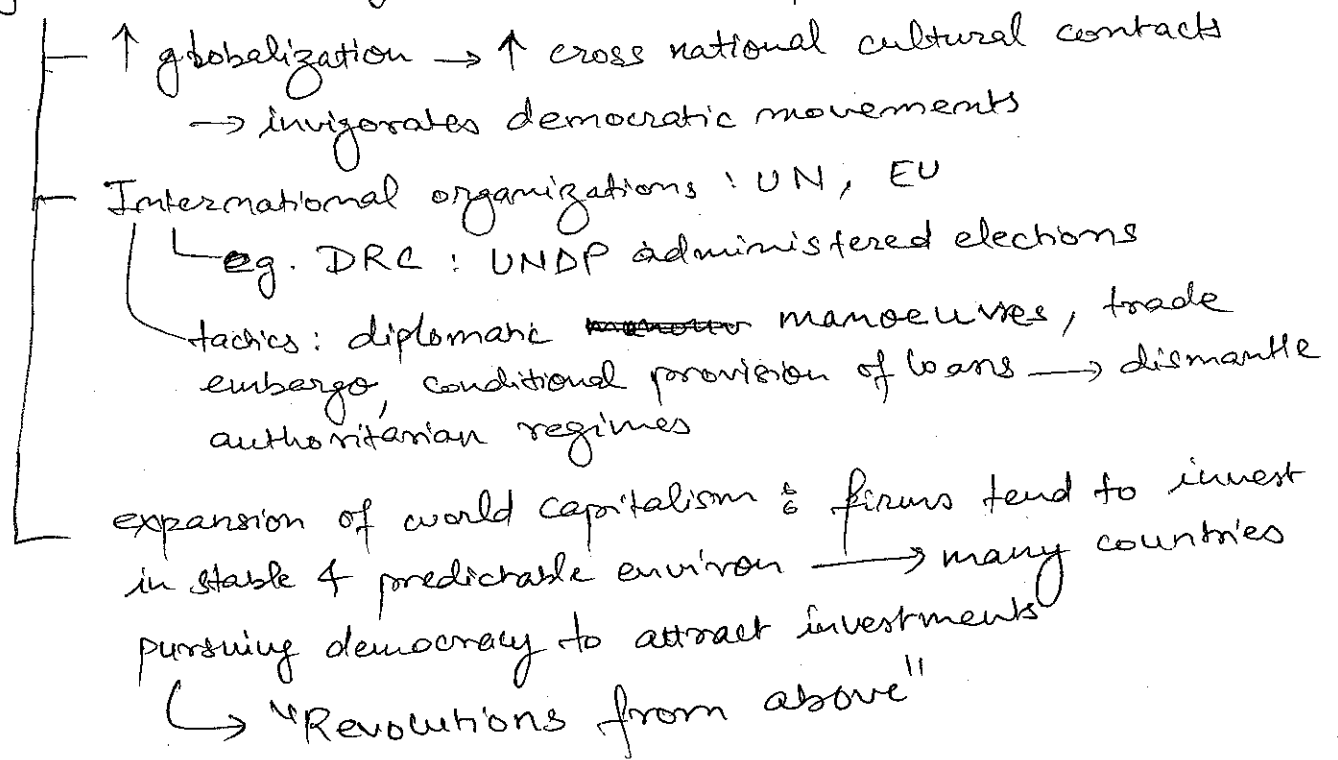 ↑ globalization → ↑ cross national cultural contacts
→ invigorates democratic movements
International organizations : UN, EU
eg. DRC : UNDP administered elections
tactics : diplomatic manoeuvres, trade
embargo, conditional provision of loans → dismantle
authoritarian regimes
expansion of world capitalism : firms tend to invest
in stable & predictable environ → many countries
pursuing democracy to attract investments
↳ "Revolutions from above"